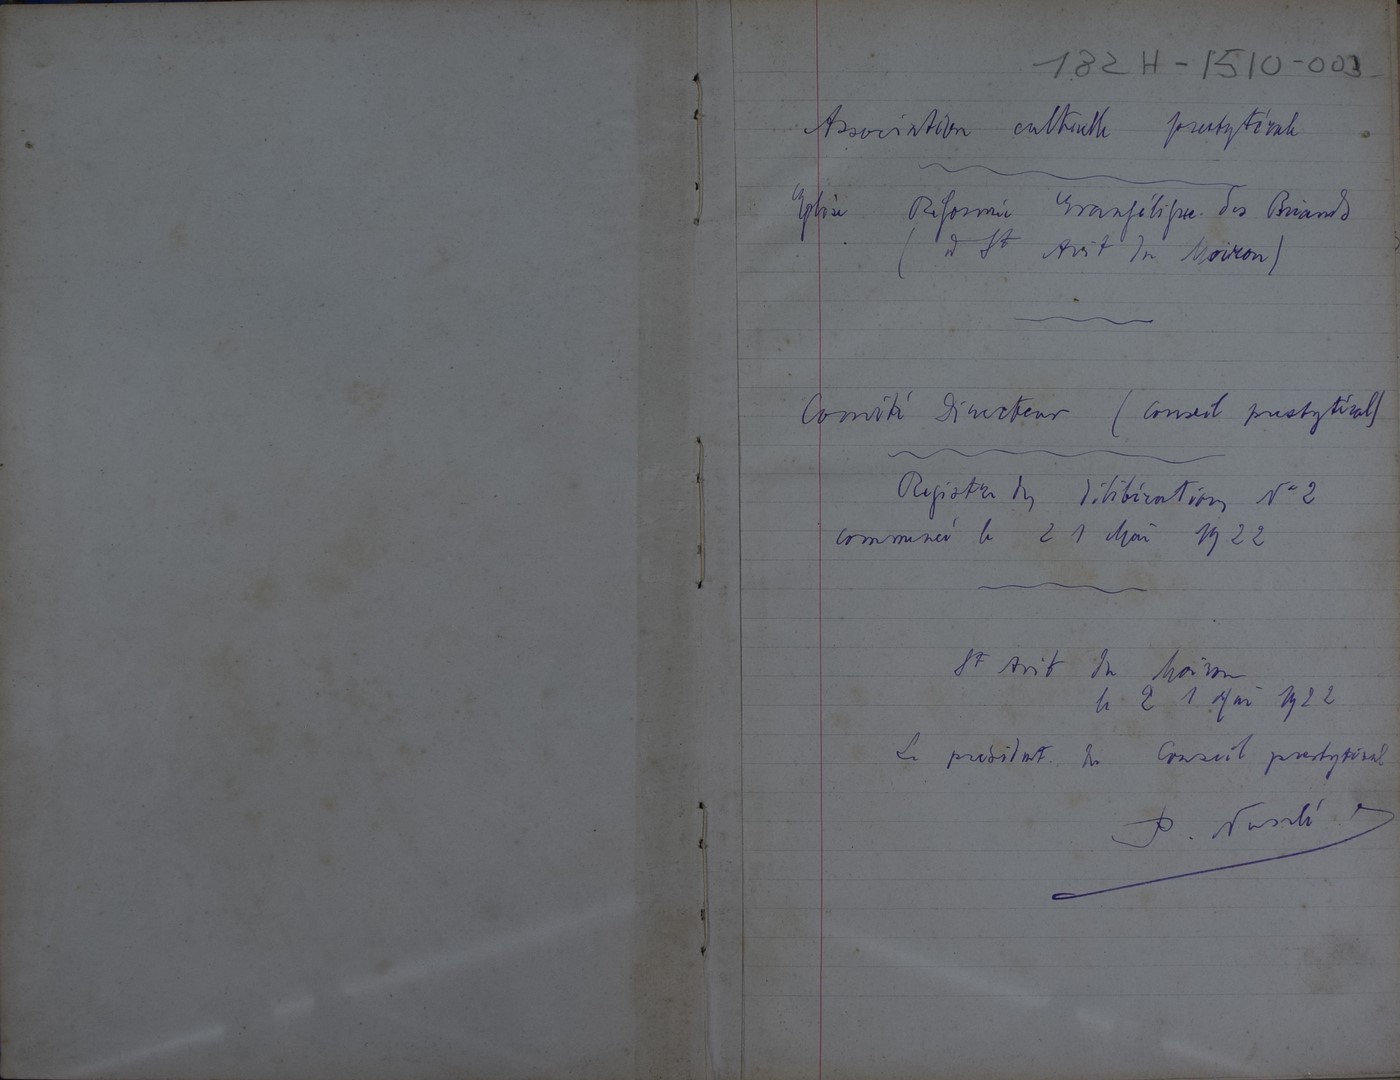 182 H - 1510 - 003
Association cultuelle presbytérale
Eglise Réformée Evangélique des Briands
(à St Avit du Moiron)
Comité Directeur (Conseil presbytéral)
Registre des délibérations No 2
commencé le 21 Mai 1922
St Avit du Moiron
le 21 Mai 1922
Le président du Conseil presbytéral
P.